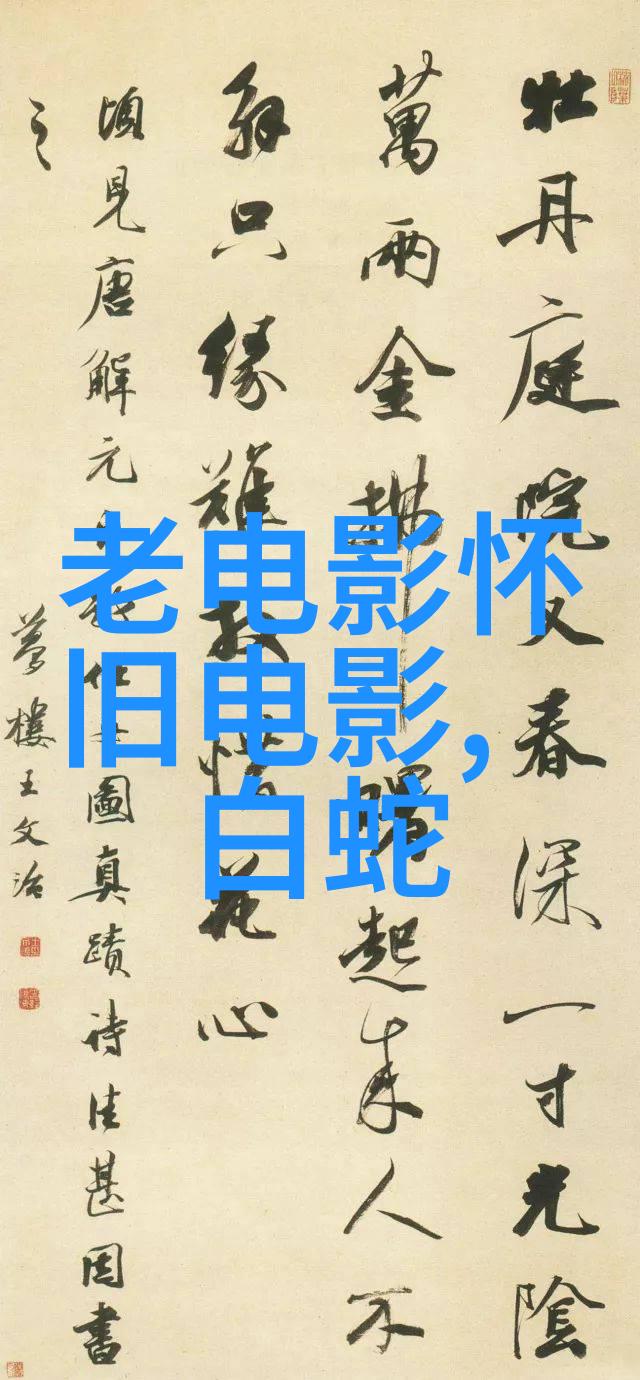 老电影怀
旧电影,
白蛇
牡丹庭院又春深一寸光陰
萬兩金拂曙起來人不
解只緣難放惜花心
頃見唐解元仕女圖真蹟詩佳甚因書
之
夢樓王文治